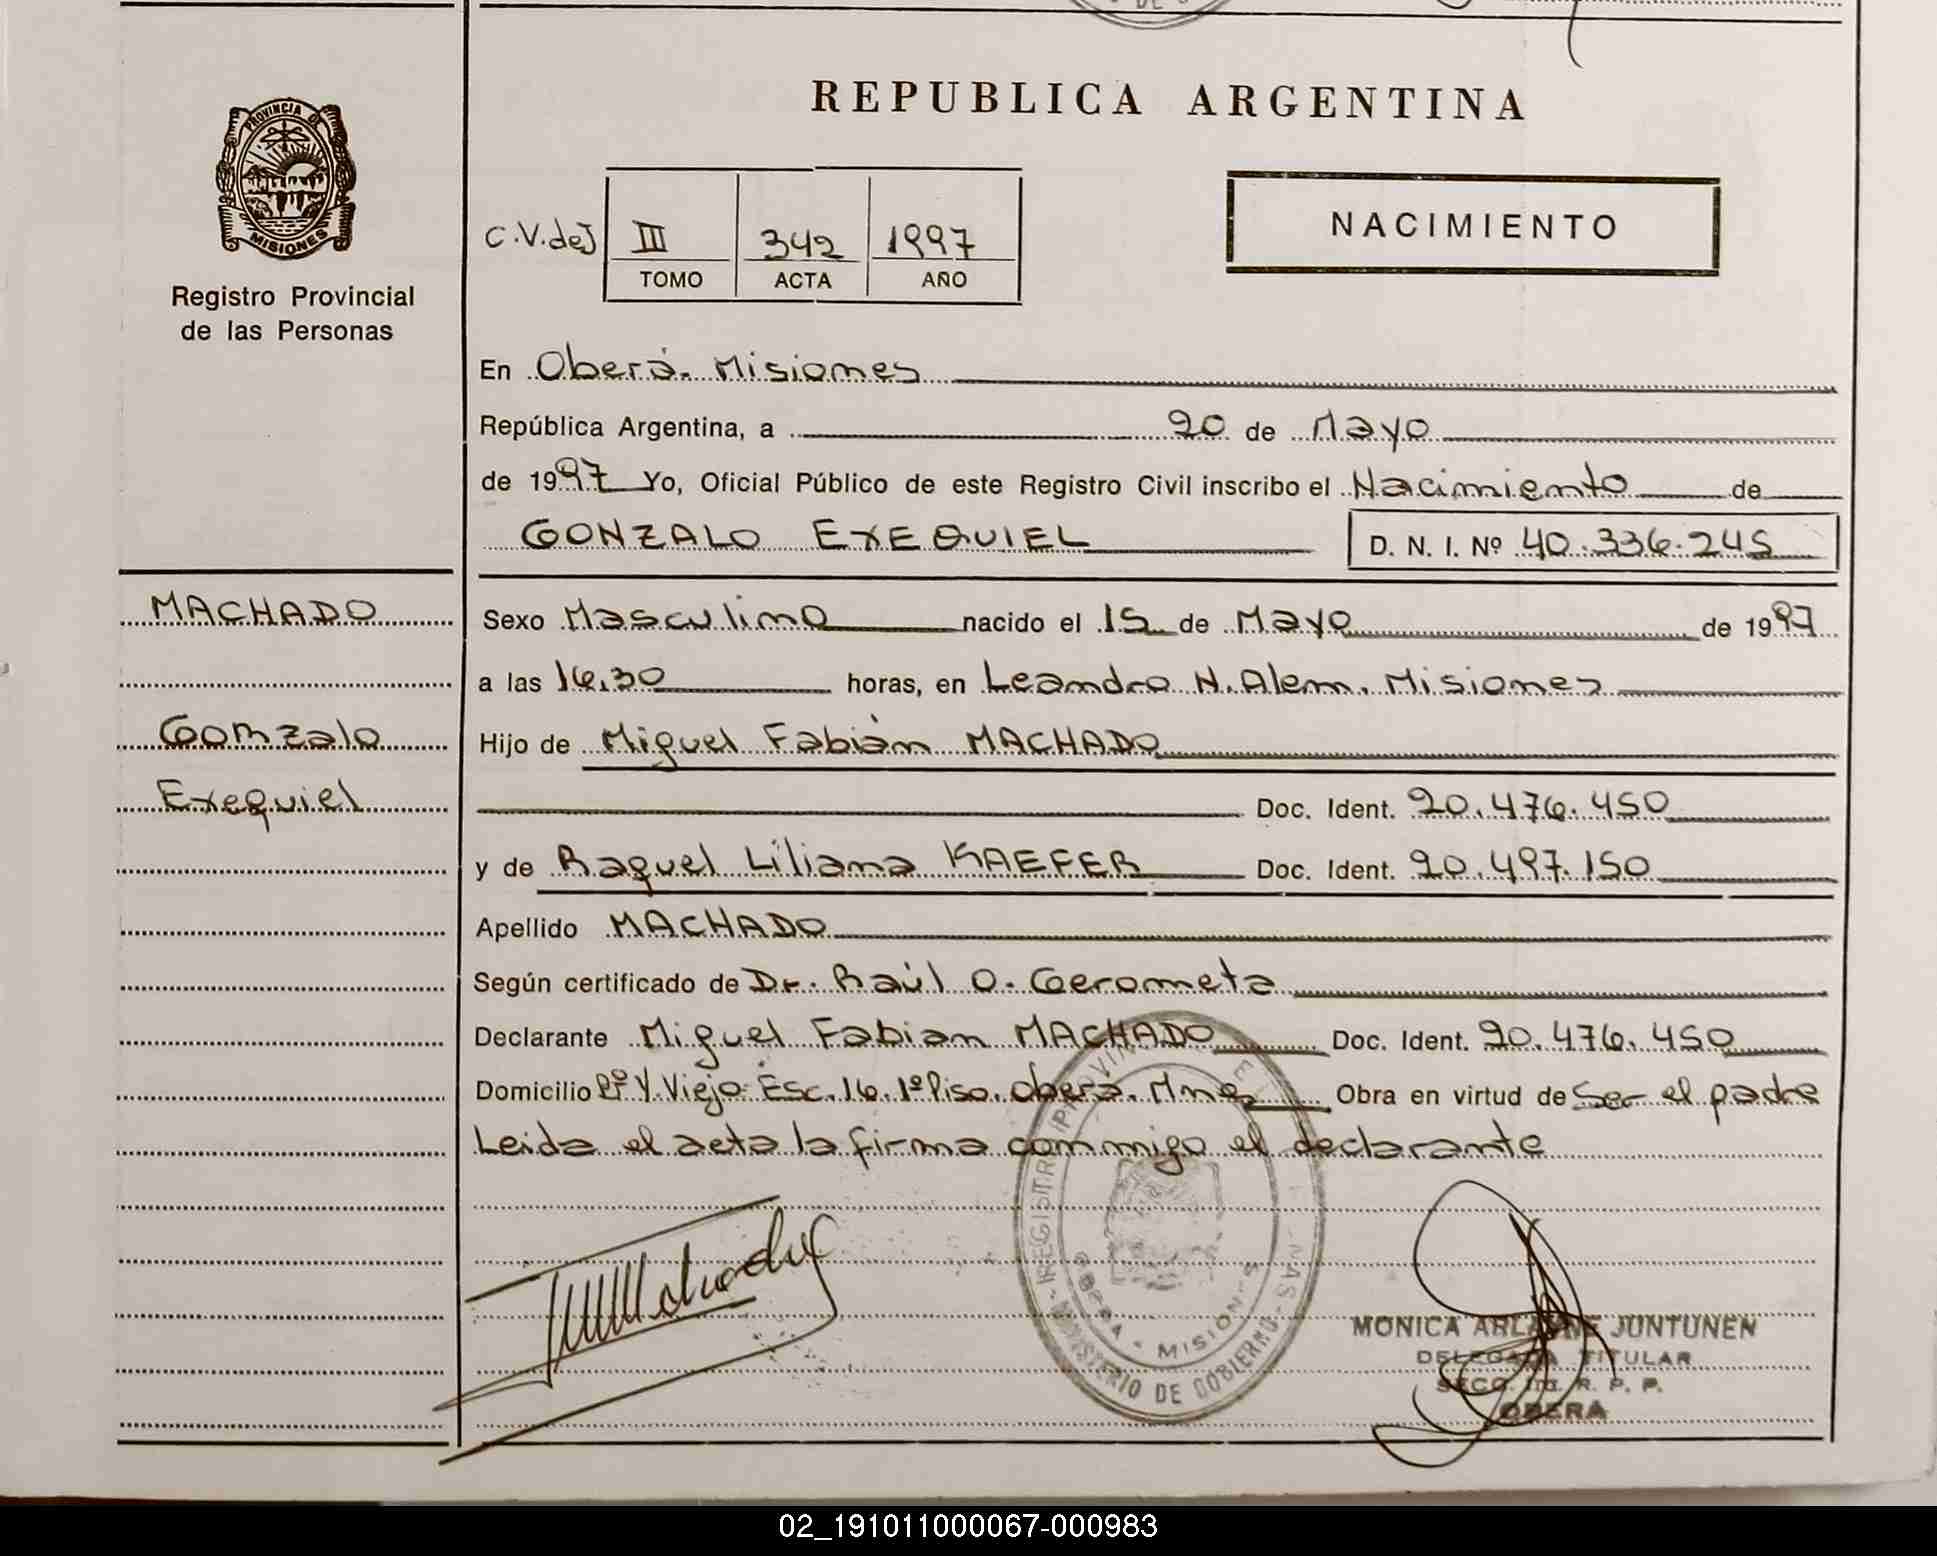 REPUBLICA ARGENTINA
PROVINCIA DE
MISIONES
Registro Provincial
de las Personas
C.V.deJ III 342 1997
TOMO ACTA AÑO
NACIMIENTO
En Oberá. Misiones
República Argentina, a 20 de Mayo
de 1997 Yo, Oficial Público de este Registro Civil inscribo el Nacimiento de
GONZALO EXEQUIEL D. N. I. Nº 40.336.245
MACHADO
Gonzalo
Exequiel
Sexo Masculino nacido el 15 de Mayo de 1997
a las 16,30 horas, en Leandro N. Alem. Misiones
Hijo de Miguel Fabián MACHADO
Doc. Ident. 20.476.450
y de Raquel Liliana KAEFER Doc. Ident. 20.497.150
Apellido MACHADO
Según certificado de Dr. Raúl O. Gerometa
Declarante Miguel Fabian MACHADO Doc. Ident. 20.476.450
Domicilio Bº Y. Viejo. Esc. 16. 1º Piso. Oberá. Mnes Obra en virtud de Ser el padre
Leida el acta la firma conmigo el declarante
REGISTRO PROVIN
OBERA - MISIONES
MINISTERIO DE GOBIERNO
MONICA JUNTUNEN
DELEGADA TITULAR
SECC. R. P. P.
OBERA
02_191011000067-000983